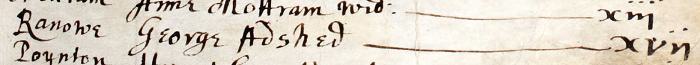 Anne Mottram wid: xiii
Ranowe George Adshed xvii
Poynton